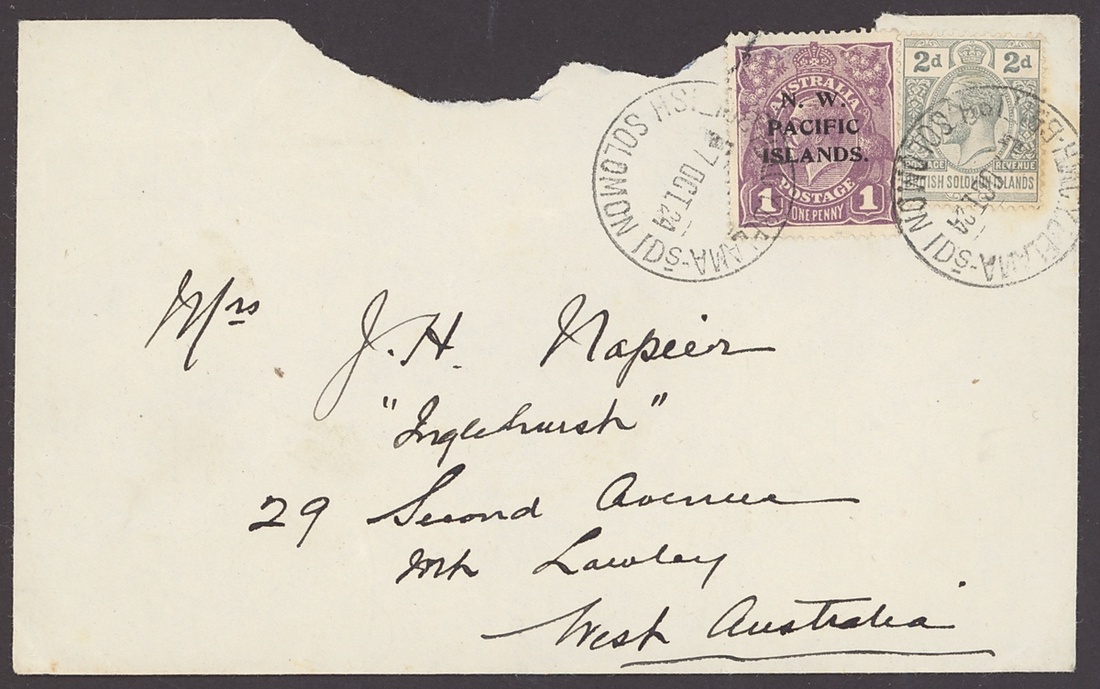 AUSTRALIA
N. W.
PACIFIC
ISLANDS.
1 POSTAGE 1
ONE PENNY
2d 2d
POSTAGE REVENUE
BRITISH SOLOMON ISLANDS
7 OCT. 24
SOLOMON IDS
OCT. 24
SOLOMON IDS
Mrs J. H. Napier
"Inglehurst"
29 Second Avenue
Mt Lawley
West Australia